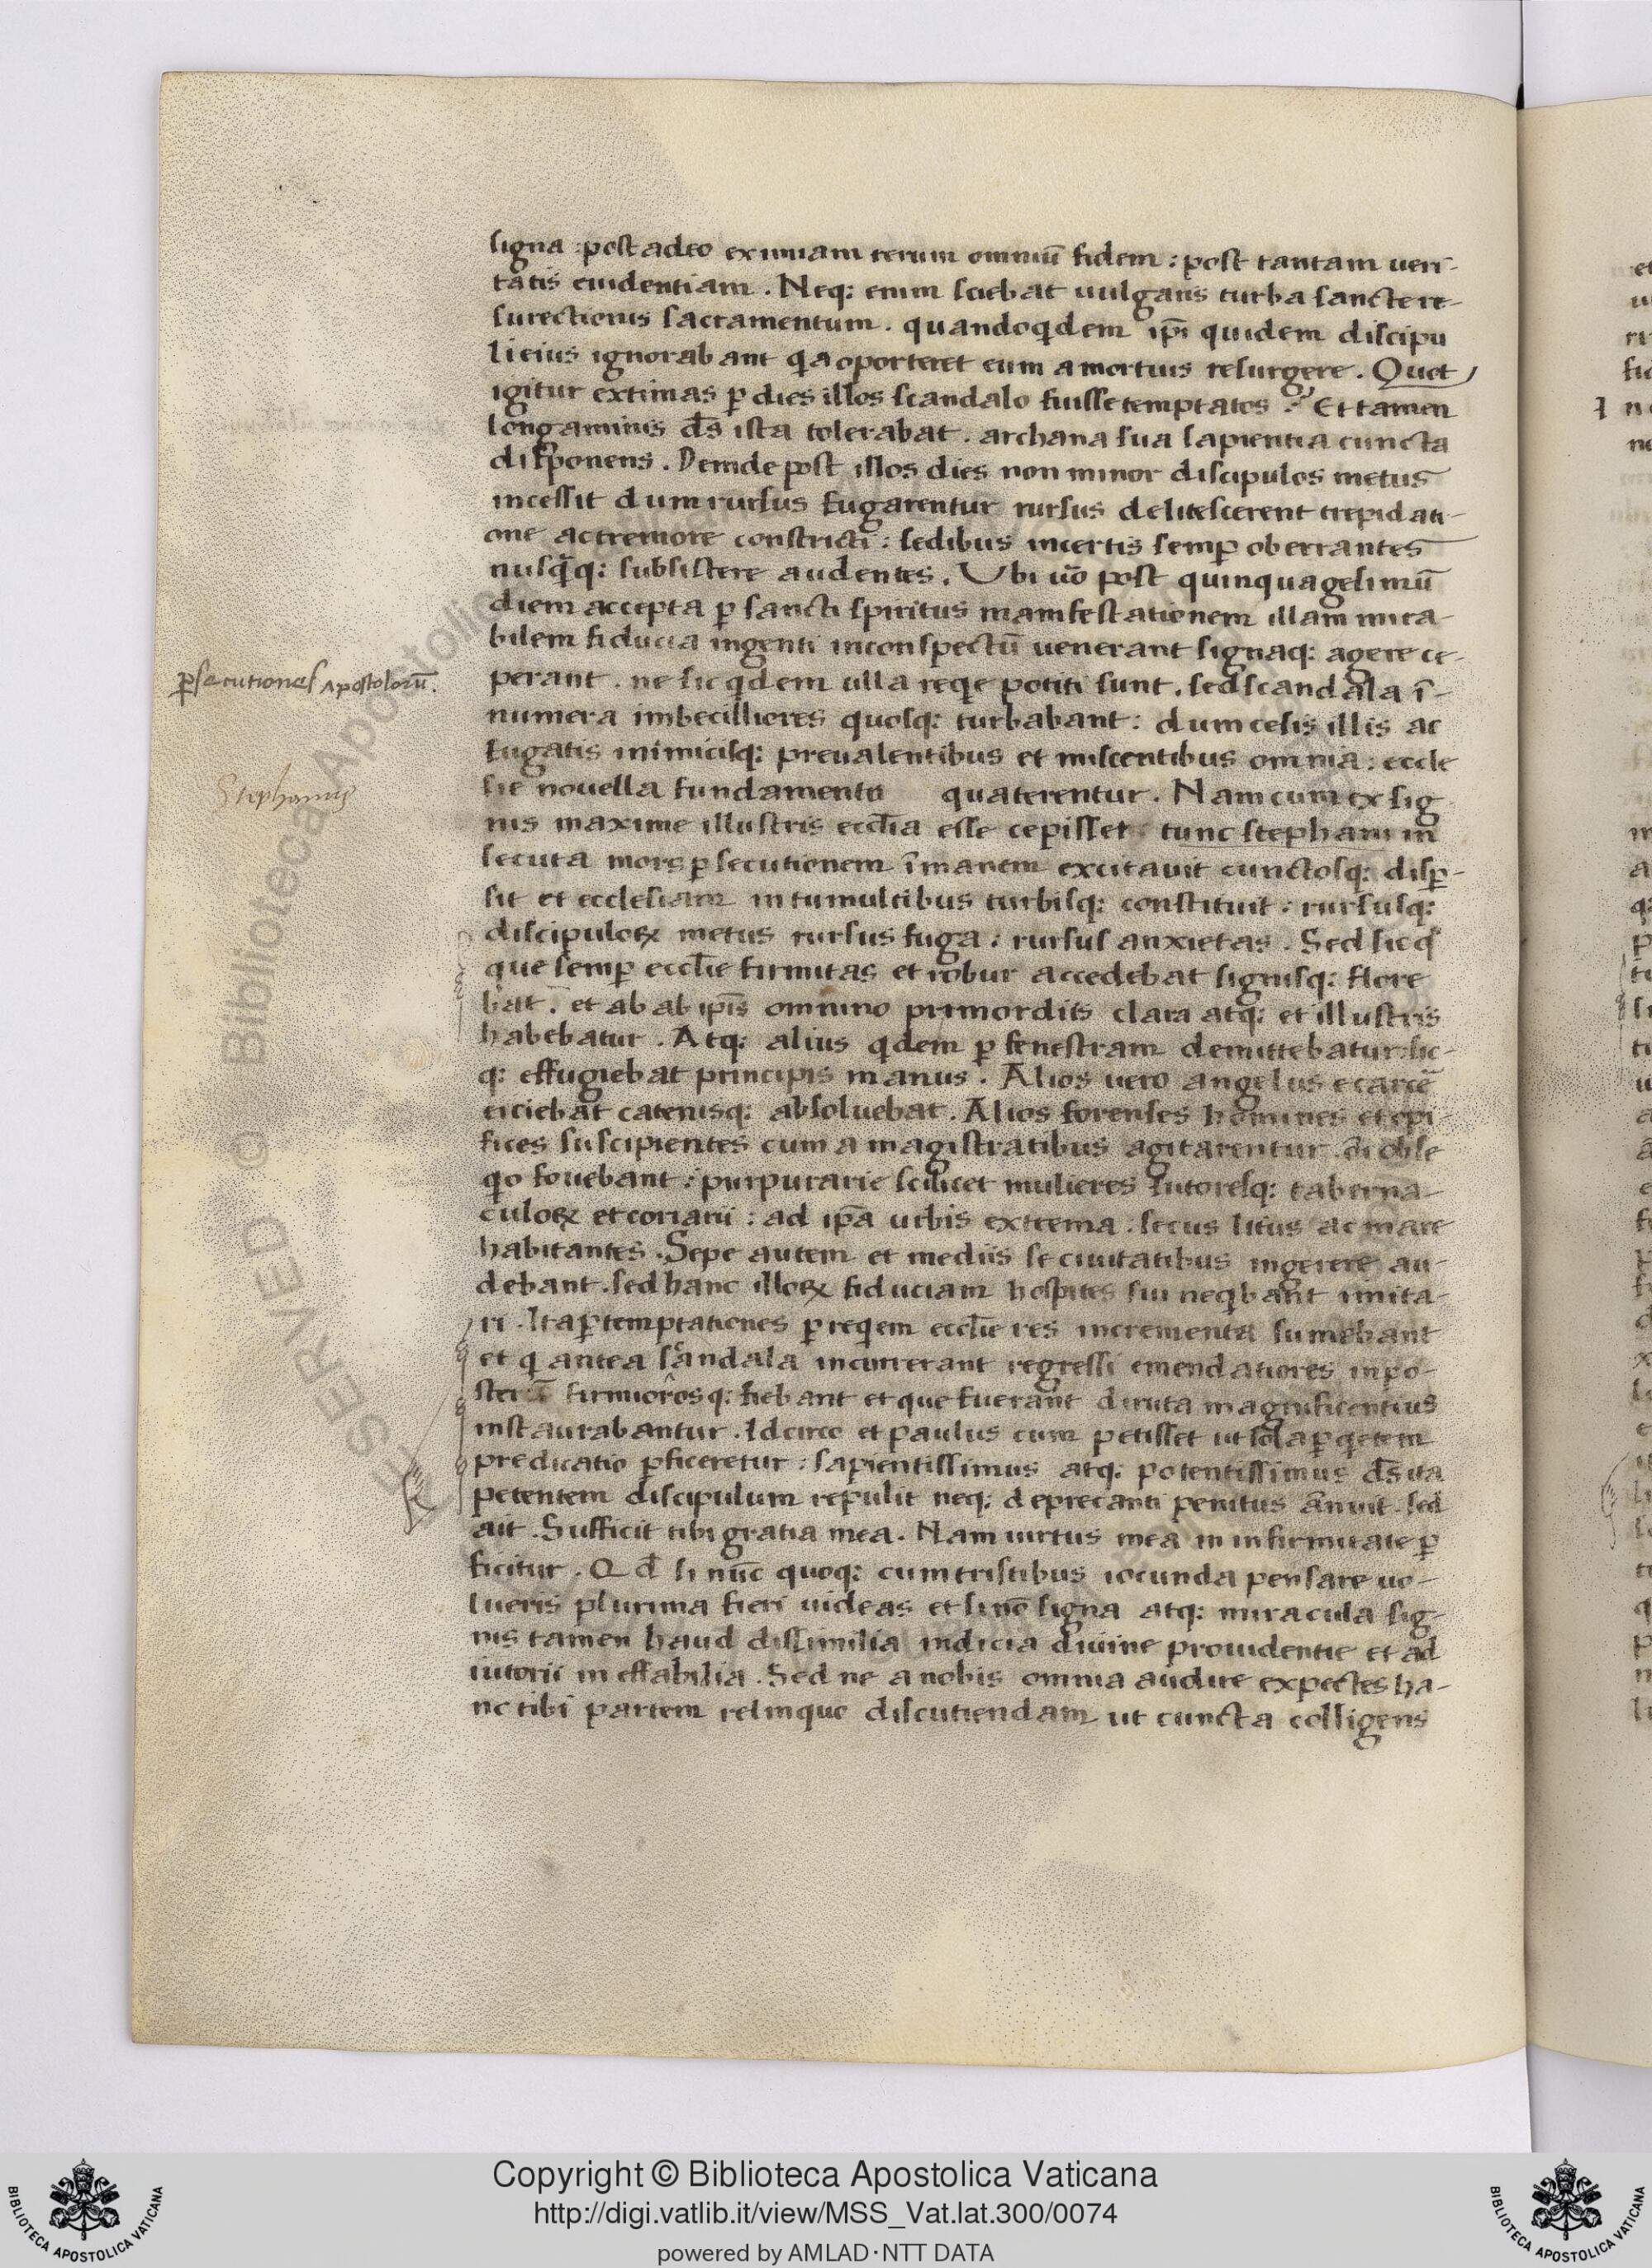 signa : post adeo eximiam rerum omniū fidem : post tantam ueri-
tatis euidentiam . Neq; enim sciebat uulgaris turba sancte re-
surectionis sacramentum . quandoqdem ip̄i quidem discipu
li eius ignorabant qa oporteret eum a mortuis resurgere . Quot
igitur extimas ꝑ dies illos scandalo fuisse temptatos ? Et tamen
longaminis d̄s ista tolerabat . archana sua sapientia cuncta
disponens . Deinde post illos dies non minor discipulos metus
incessit dum rursus fugarentur rursus delitescerent trepidati-
one ac tremore constricti : sedibus incertis semꝑ oberrantes
nusq̄q; subsistere audentes . Ubi ūo post quinquagesimū
diem accepta ꝑ sancti spiritus manifestationem illam mira-
bilem fiducia ingenti in conspectū uenerant signaq; agere ce-
perant . ne sic qdem ulla reqe potiti sunt . sed scandala ī-
numera imbecilliores quosq; turbabant : dum cesis illis ac
fugatis inimicisq; preualentibus et miscentibus omnia : eccle
sie nouella fundamenta quaterentur . Nam cum ex sig
nis maxime illustris eccl̄ia esse cepisset tunc stephani in
secuta mors ꝑsecutionem īmanem excitauit cunctosq; disꝑ-
sit et ecclesiam in tumultibus turbisq; constituit . rursusq;
discipuloꝝ metus rursus fuga : rursus anxietas . Sed sic q
que semꝑ eccl̄ie firmitas et robur accedebat signisq; flore
bat . et ab ab ip̄is omnino primordiis clara atq; et illustris
habebatur . Atq; alius qdem ꝑ fenestram demittebatur sic-
q; effugiebat principis manus . Alios uero angelus e carcē
eiciebat catenisq; absoluebat . Alios forenses homines et opi-
fices suscipientes cum a magistratibus agitarentur . oī obse
qo fouebant : purpurarie scilicet mulieres sutoresq; taberna-
culoꝝ et coriarii : ad ip̄a urbis extrema . secus litus ac mare
habitantes . Sepe autem et mediis se ciuitatibus ingerere au-
debant . sed hanc illoꝝ fiduciam hospites sui neqbant imita-
ri . Ita ꝑ temptationes ꝑ reqem eccl̄ie res incrementa sumebant
et q antea scandala incurrerant regressi emendatiores in po-
firmioresq; fiebant et que fuerant diruta magnificentius
instaurabantur . Idcirco et paulus cum petisset ut sola ꝑ qetem
predicatio ꝑficeretur : sapientissimus atq; potentissimus d̄s ita
petentem discipulum repulit neq; deprecanti penitus ānuit . sed
ait . Sufficit tibi gratia mea . Nam uirtus mea in infirmitate ꝑ
ficitur . Q d̄ si nūc quoq; cum tristibus iocunda pensare uo-
lueris plurima fieri uideas et si nō signa atq; miracula sig-
nis tamen haud dissimilia indicia diuine prouidentie et ad
iutorii ineffabilia . Sed ne a nobis omnia audire expectes ha-
nc tibi partem relinquo discutiendam ut cuncta colligens
ꝑsecutiones Apostolorū.
Stephanus
Copyright © Biblioteca Apostolica Vaticana
http://digi.vatlib.it/view/MSS_Vat.lat.300/0074
powered by AMLAD·NTT DATA
BIBLIOTECA APOSTOLICA VATICANA
BIBLIOTECA APOSTOLICA VATICANA